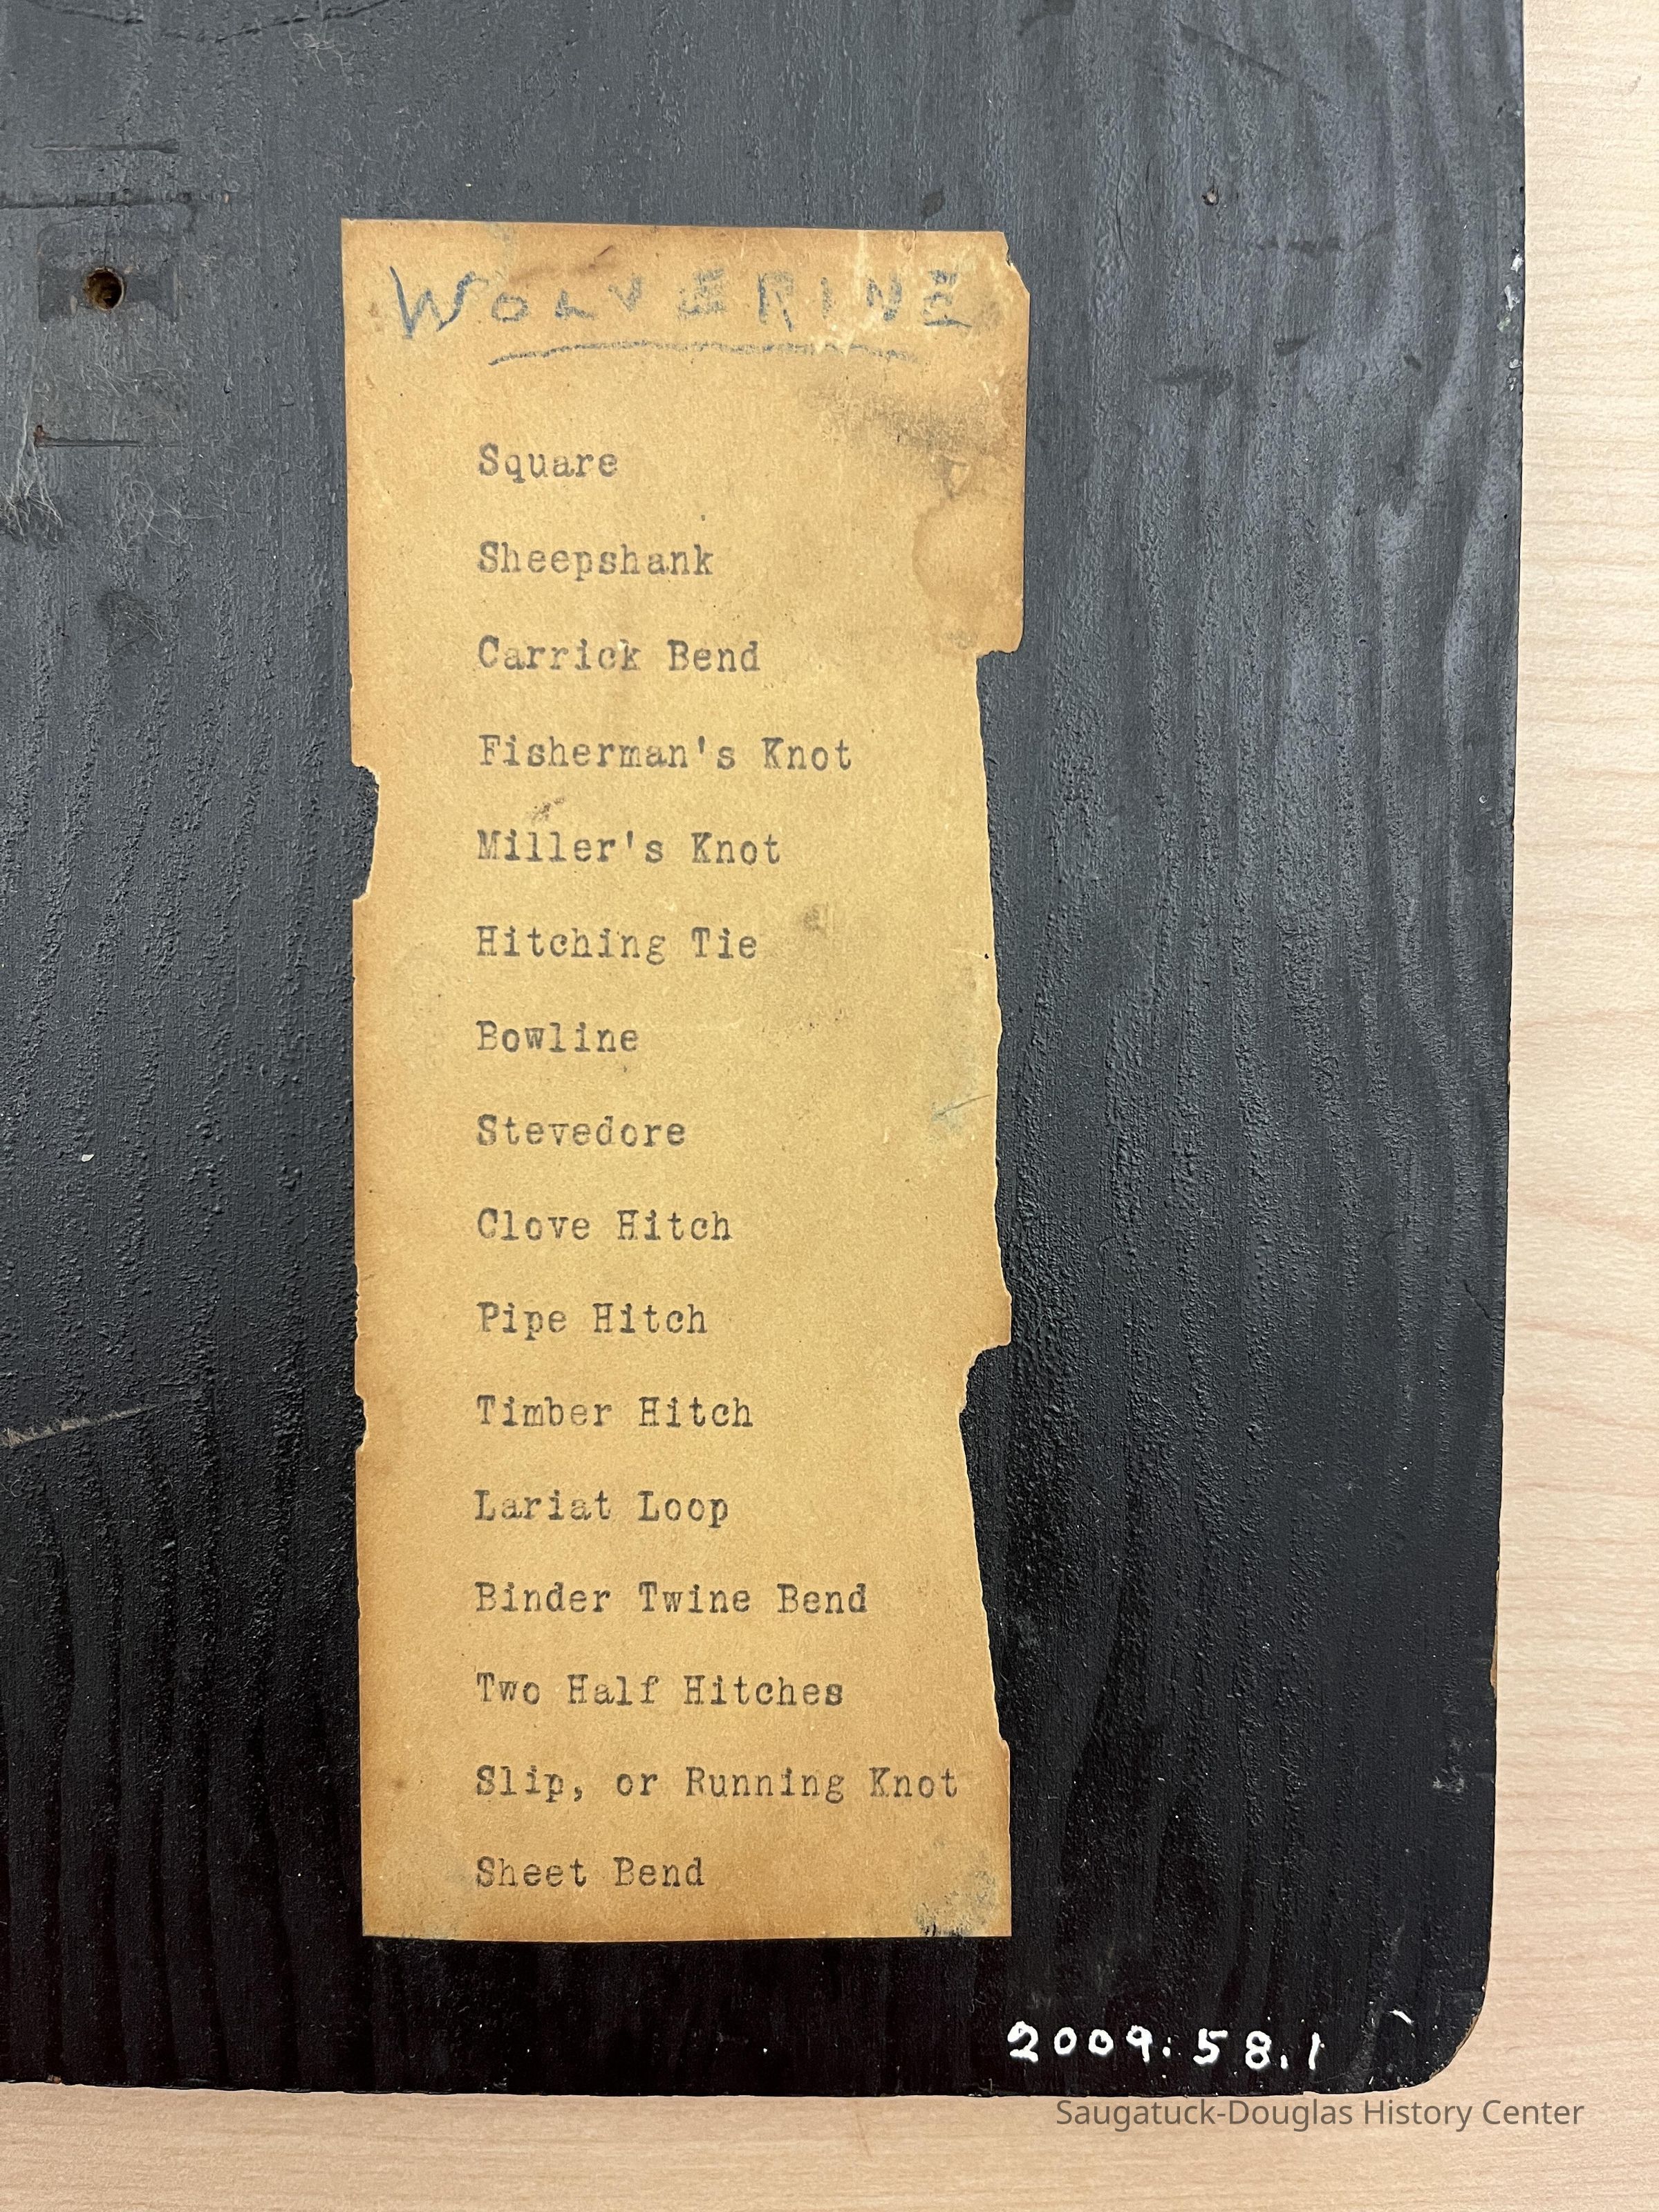 WOLVERINE
Square
Sheepshank
Carrick Bend
Fisherman's Knot
Miller's Knot
Hitching Tie
Bowline
Stevedore
Clove Hitch
Pipe Hitch
Timber Hitch
Lariat Loop
Binder Twine Bend
Two Half Hitches
Slip, or Running Knot
Sheet Bend
2009.58.1
Saugatuck-Douglas History Center